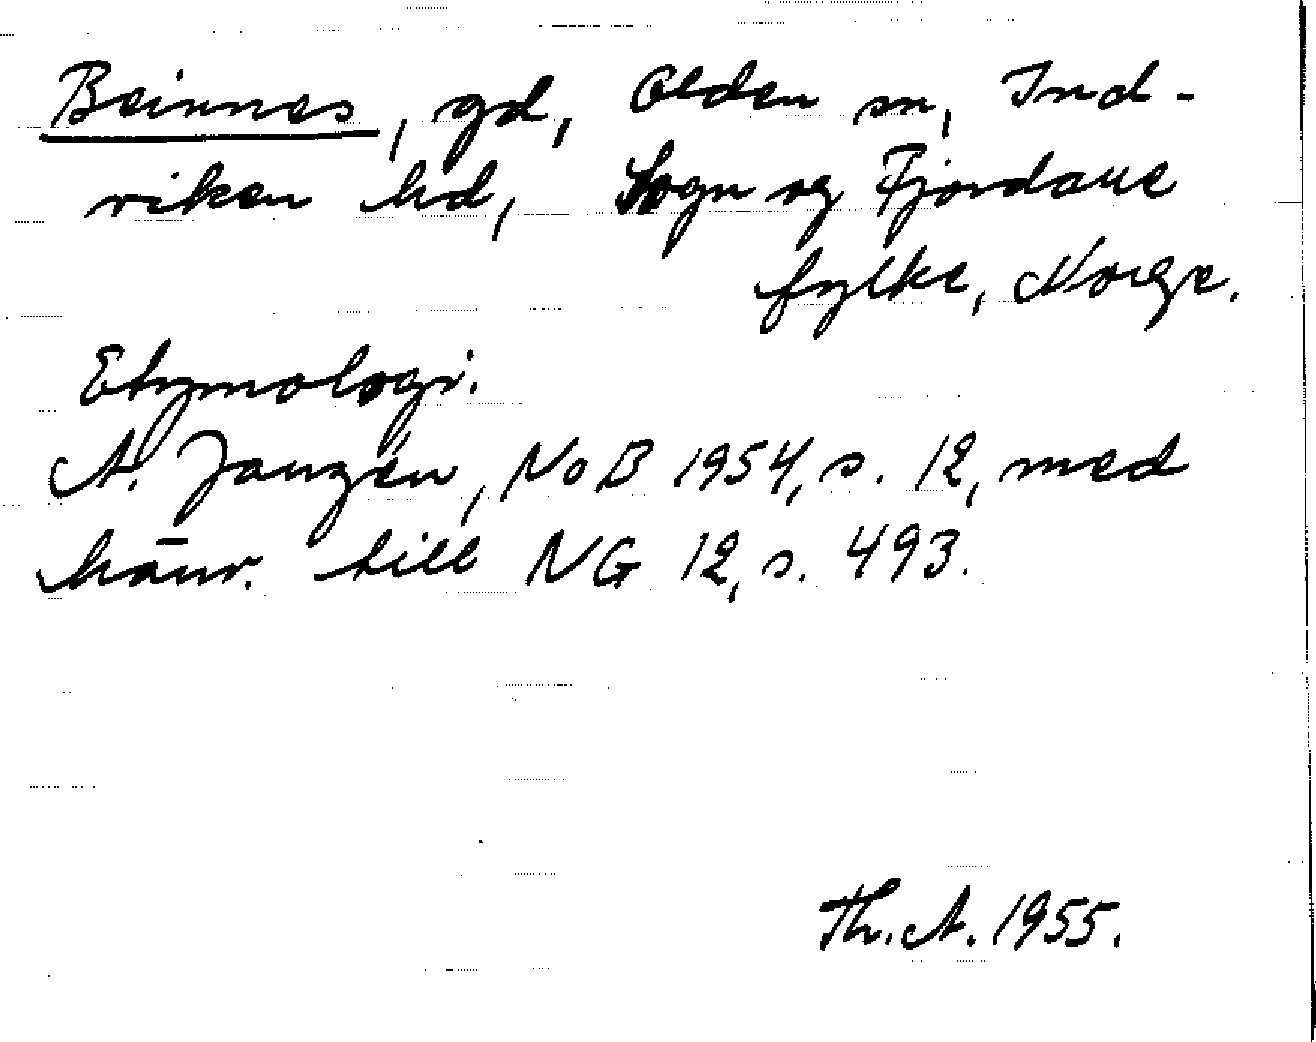 Beinnes, gd, Olden sn, Ind-
viken hd, Sogn og Fjordane
fylke, Norge.
Etymologi.
A. Janzén, NoB 1954, s. 12, med
hänv. till NG 12, s. 493.
Th. A. 1955.